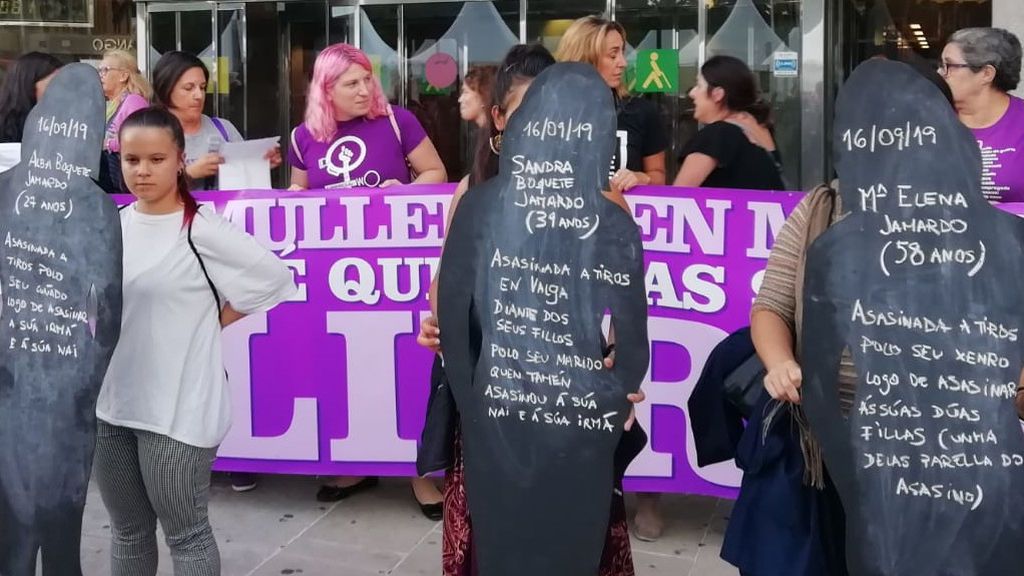 ANGO
16/09/19
ALBA BOQUETE
JAMARDO
(27 ANOS)
ASASINADA A
TIROS POLO
SEU CUÑADO
LOGO DE ASASINAR
A SÚA IRMÁ
E Á SÚA NAI
16/09/19
SANDRA
BOQUETE
JAMARDO
(39 ANOS)
ASASINADA A TIROS
EN VALGA
DIANTE DOS
SEUS FILLOS
POLO SEU MARIDO
QUEN TAMÉN
ASASINOU Á SÚA
NAI E Á SÚA IRMÁ
16/09/19
Mª ELENA
JAMARDO
(58 ANOS)
ASASINADA A TIROS
POLO SEU XENRO
LOGO DE ASASINAR
ÁS SÚAS DÚAS
FILLAS (UNHA
DELAS PARELLA DO
ASASINO)
MULLE EN M
É QU AS S
LI R